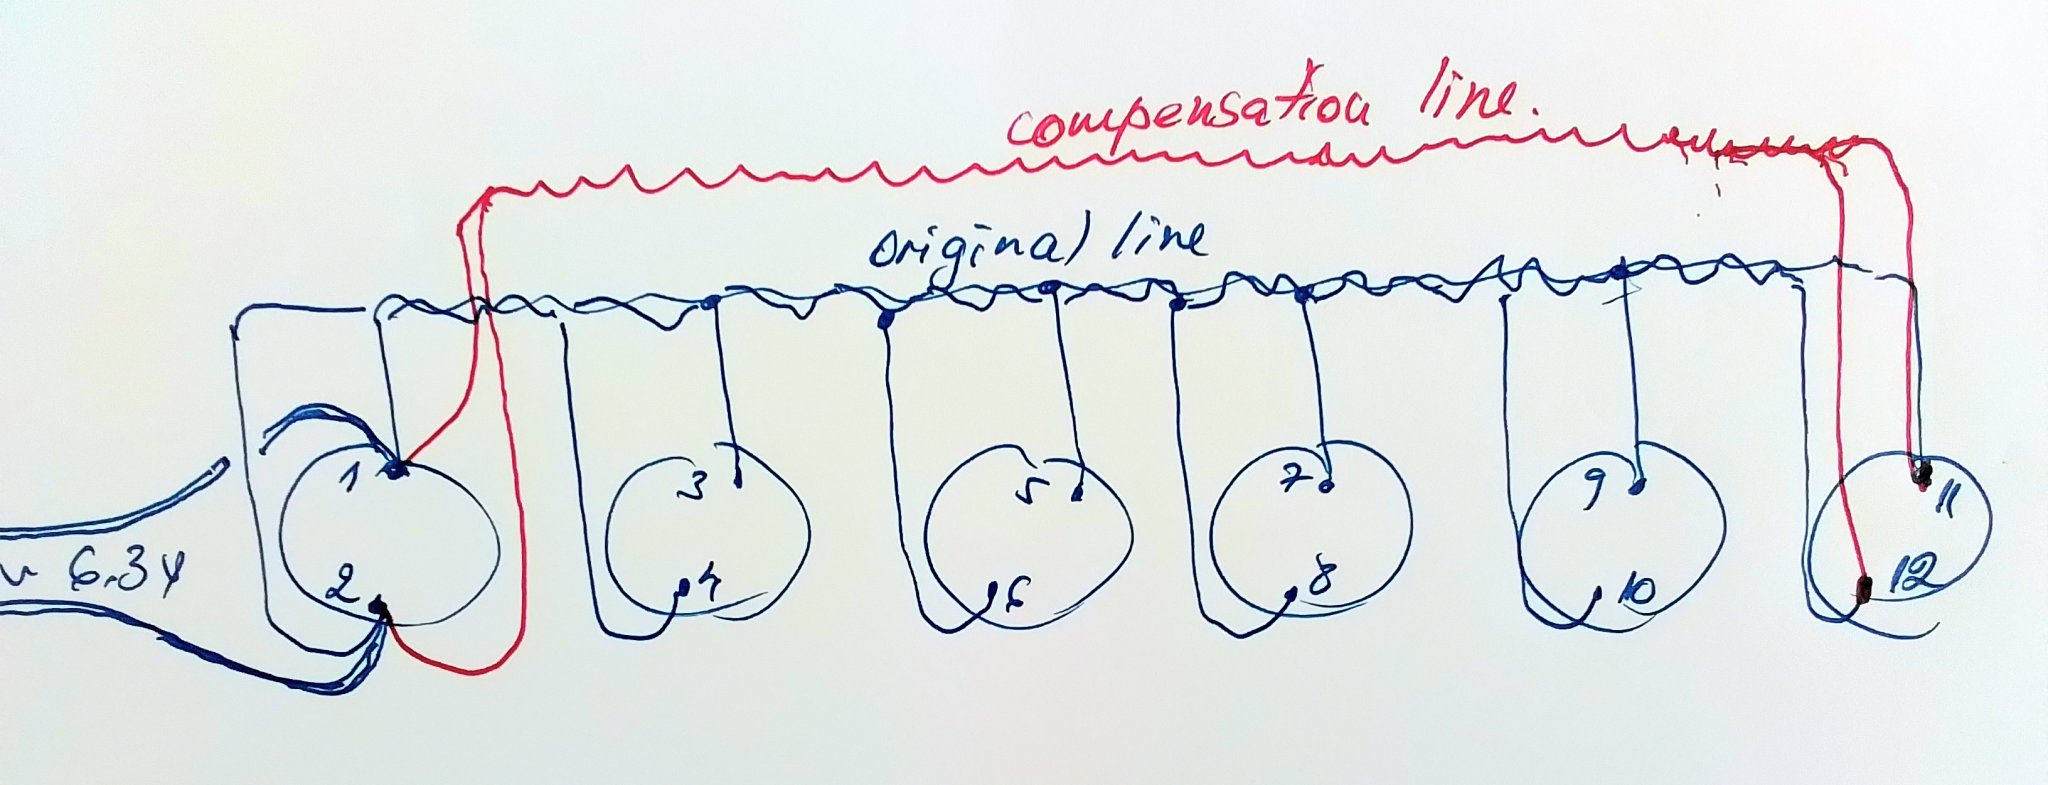 compensation line.
original line
1 3 5 7 9 11
~ 6.3V
2 4 6 8 10 12